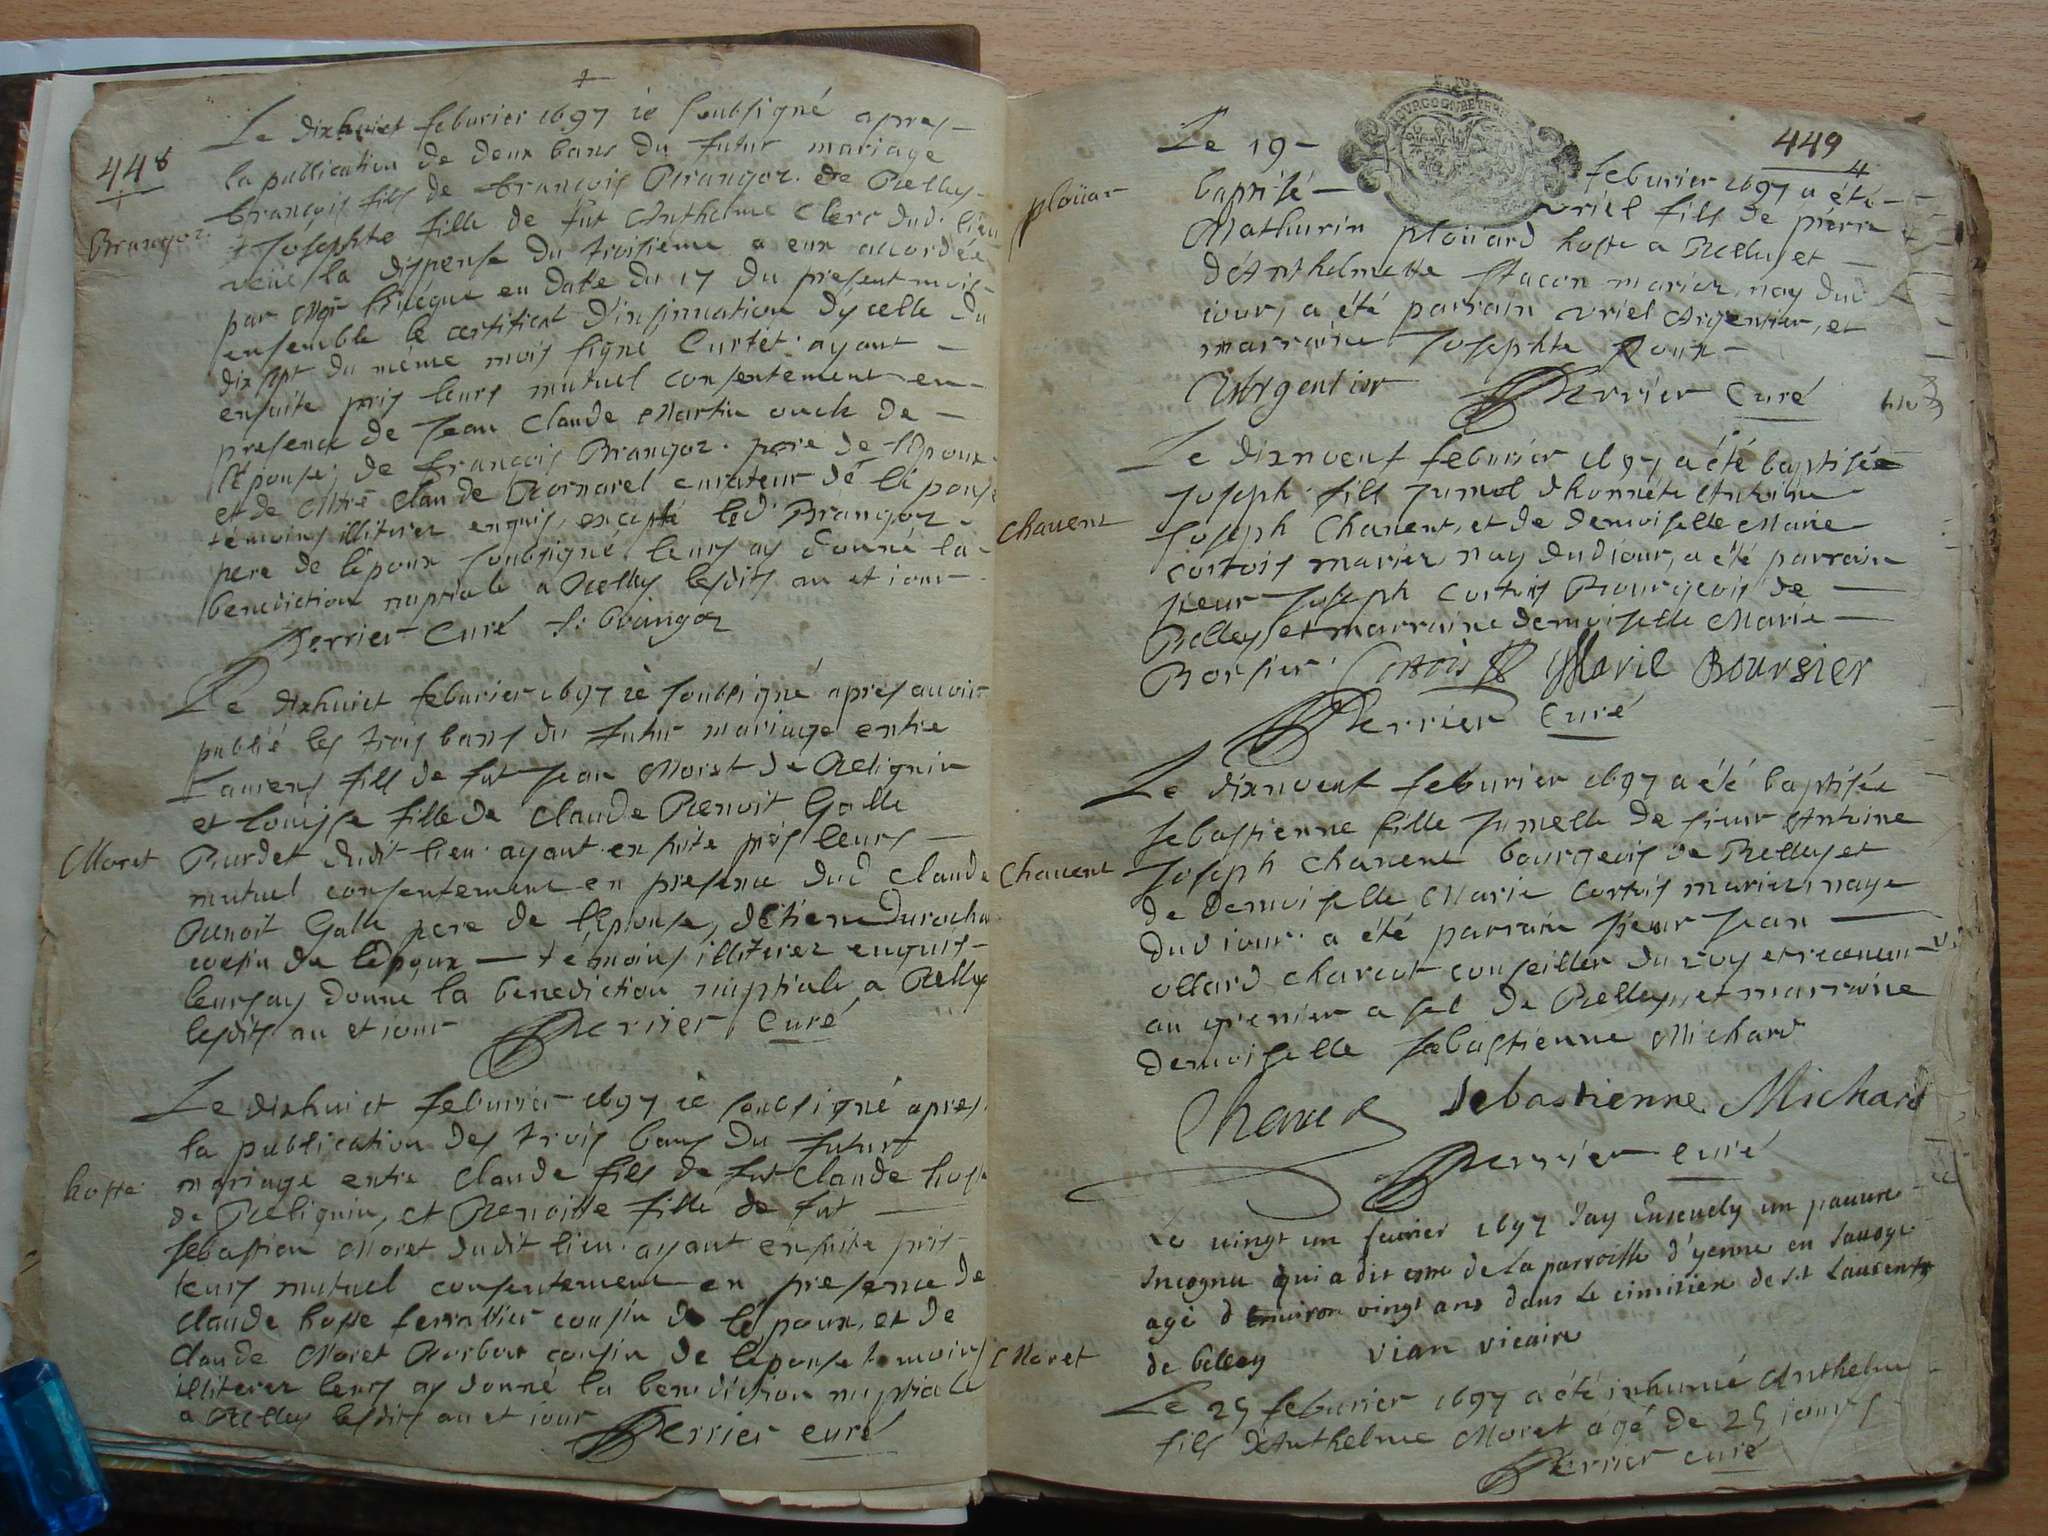 448
Le dixhuict feburier 1697 ie soubsigné apres
la publication de deux bans du futur mariage
françois fils de françois Brangoz de Belley
Brangoz
& Josephte fille de fut Anthelme Clerc dud. lieu
veu la dispense du troisieme a eux accordée
par Mgr l'evéque en date du 17 du present mois
ensemble le certificat d'insinuation dycelle du
dix sept du même mois signé Curtet ayant
ensuite pris leurs mutuel consentement en
presence de Jean Claude Martin oncle de
l'Epouse, de françois Brangoz pere de l'Epoux
et de Mtre Claude Bornarel curateur de l'epouse
témoins illiterez enquis, excepté led. Brangoz
pere de l'époux soubsigné leurs ay donné la
benediction nuptiale a Belley lesdits an et iour
Perrier Curé f. brangoz
Le dixhuict feburier 1697 ie soubsigné apres avoir
publié les trois bans du futur mariage entre
Laurens fils de fut Jean Moret de Belignin
et Louise fille de Claude Benoit Galle
Moret
Burdet dudit lieu ayant ensuite pris leurs
mutuel consentement en presence dud Claude
Benoit Galle pere de l'Epouse, détiene Durochat
cousin de l'époux témoins illiterez enquis
leurs ay donné la benediction nuptiale a Belley
lesdits an et iour Perrier Curé
Le dixhuict feburier 1697 ie soubsigné apres
la publication des trois bans du futur
hoste
mariage entre Claude fils de fut Claude hoste
de Belignin, et Benoitte fille de fut
Sebastien Moret dudit lieu ayant ensuite pris
leurs mutuel consentement en presence de
Claude hoste ferrattier cousin de l'époux, et de
Claude Moret Borbon cousin de l'épouse temoins
illiterez leurs ay donné la benediction nuptiale
a Belley lesdits an et iour Perrier curé
449
4
BOURGOGNE ET BRES
Le 19 feburier 1697 a été
ploüar
baptisé Vriel fils de pierre
Mathurin ploüard hoste a Belley et
d'Anthelmette Stacon mariez, nay dud
iour, a été parrain Vriel Argentier, et
marraine Josephte Roux
Argentier Perrier Curé
Le dixneuf feburier 1697 a été baptisé
Joseph fils Jumel d'honnéte Antoine
Chauent
Joseph Chauent, et de demoiselle Marie
Cortois mariez nay dud iour, a été parrain
sieur Joseph Cortois Bourgeois de
Belley et marraine demoiselle Marie
Borsier Cortois Marie Boursier
Perrier Curé
Le dixneuf feburier 1697 a été baptisée
Sebastienne fille Jumelle de sieur Antoine
Chauent
Joseph Chauent bourgeois de Belley et
de Demoiselle Marie Cortois mariez, naye
dud iour a été parrain sieur Jean
ollard charcot conseiller du roy et receueur
au grenier a sel de Belley, et marraine
demoiselle Sebastienne Michard
Sebastienne Michard
Perrier curé
Le vingt un feurier 1697 Jay Enseuely un pauure
Incognu qui a dit estre de la parroisse d'yenne en sauoye
agé d enuiron vingt ans dans le cimitiere de St Laurent
de belley vian vicaire
Moret
Le 25 feburier 1697 a été inhumé Anthelme
fils d'Anthelme Moret agé de 25 iours
Perrier curé